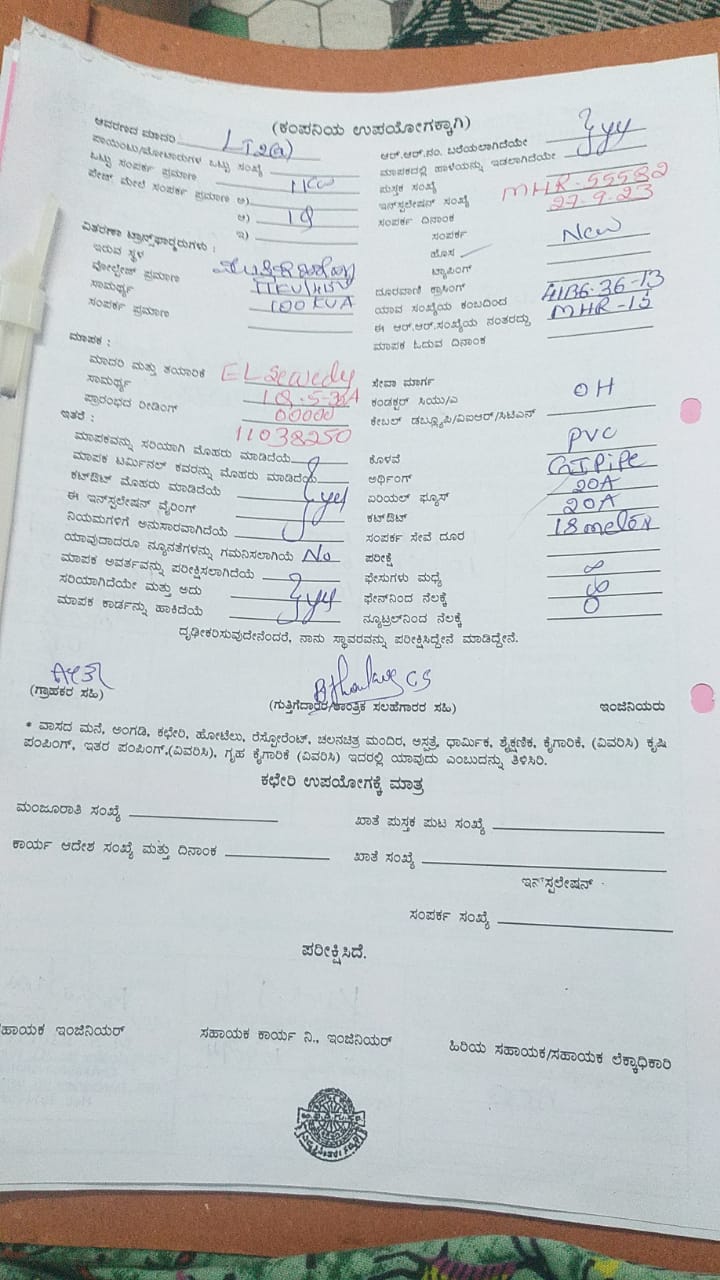 (ಕಂಪನಿಯ ಉಪಯೋಗಕ್ಕಾಗಿ)
ಆವರಣದ ಮಾದರಿ LT2(a)
ಪಾಯಿಂಟು/ಮೋಟಾರುಗಳ ಒಟ್ಟು ಸಂಖ್ಯೆ
ಒಟ್ಟು ಸಂಪರ್ಕ ಪ್ರಮಾಣ 1KW
ಪೇಚ್ ಮೇಲೆ ಸಂಪರ್ಕ ಪ್ರಮಾಣ ಅ)
ಆ) 1φ
ಇ)
ವಿತರಣಾ ಟ್ರಾನ್ಸ್‌ಫಾರ್ಮರುಗಳು :
ಇರುವ ಸ್ಥಳ
ವೋಲ್ಟೇಜ್ ಪ್ರಮಾಣ
ಸಾಮರ್ಥ್ಯ 100 KVA
ಸಂಪರ್ಕ ಪ್ರಮಾಣ
ಆರ್.ಆರ್.ನಂ. ಬರೆಯಲಾಗಿದೆಯೇ
ಮಾಪಕದಲ್ಲಿ ಹಾಳೆಯನ್ನು ಇಡಲಾಗಿದೆಯೇ
ಪುಸ್ತಕ ಸಂಖ್ಯೆ
ಇನ್‌ಸ್ಟಲೇಷನ್ ಸಂಖ್ಯೆ MHR-55582
ಸಂಪರ್ಕ ದಿನಾಂಕ 27.9.23
ಸಂಪರ್ಕ
ಹೊಸ New
ಟ್ಯಾಪಿಂಗ್
ದೂರವಾಣಿ ಕ್ರಾಸಿಂಗ್
ಯಾವ ಸಂಖ್ಯೆಯ ಕಂಬದಿಂದ
ಈ ಆರ್.ಆರ್.ಸಂಖ್ಯೆಯ ನಂತರದ್ದು
ಮಾಪಕ ಓದುವ ದಿನಾಂಕ
ಮಾಪಕ :
ಮಾದರಿ ಮತ್ತು ತಯಾರಿಕೆ EL Sewedy
ಸಾಮರ್ಥ್ಯ 1φ.5-30A
ಪ್ರಾರಂಭದ ರೀಡಿಂಗ್ 00000
ಇತರೆ : 11038250
ಮಾಪಕವನ್ನು ಸರಿಯಾಗಿ ಮೊಹರು ಮಾಡಿದೆಯೆ
ಮಾಪಕ ಟರ್ಮಿನಲ್ ಕವರನ್ನು ಮೊಹರು ಮಾಡಿದೆಯೆ
ಕಟ್‌ಔಟ್ ಮೊಹರು ಮಾಡಿದೆಯೆ yes
ಈ ಇನ್‌ಸ್ಟಲೇಷನ್ ವೈರಿಂಗ್
ನಿಯಮಗಳಿಗೆ ಅನುಸಾರವಾಗಿದೆಯೆ
ಯಾವುದಾದರೂ ನ್ಯೂನತೆಗಳನ್ನು ಗಮನಿಸಲಾಗಿಯೆ No
ಮಾಪಕ ಅವರ್ತವನ್ನು ಪರೀಕ್ಷಿಸಲಾಗಿದೆಯೆ
ಸರಿಯಾಗಿದೆಯೇ ಮತ್ತು ಅದು
ಮಾಪಕ ಕಾರ್ಡನ್ನು ಹಾಕಿದೆಯೆ
ಸೇವಾ ಮಾರ್ಗ
ಕಂಡಕ್ಟರ್ ಸಿಯು/ಎ OH
ಕೇಬಲ್ ಡಬ್ಲ್ಯೂಪಿ/ವಿಐಆರ್/ಸಿಟಿಎಸ್
ಕೊಳವೆ PVC
ಅರ್ಥಿಂಗ್ GI Pipe
ಏರಿಯಲ್ ಫ್ಯೂಸ್ 20A
ಕಟ್‌ಔಟ್ 20A
ಸಂಪರ್ಕ ಸೇವೆ ದೂರ
ಪರೀಕ್ಷೆ
ಫೇಸುಗಳು ಮಧ್ಯೆ ∞
ಫೇಸ್‌ನಿಂದ ನೆಲಕ್ಕೆ ∞
ನ್ಯೂಟ್ರಲ್‌ನಿಂದ ನೆಲಕ್ಕೆ 0
ದೃಢೀಕರಿಸುವುದೇನೆಂದರೆ, ನಾನು ಸ್ಥಾವರವನ್ನು ಪರೀಕ್ಷಿಸಿದ್ದೇನೆ ಮಾಡಿದ್ದೇನೆ.
(ಗ್ರಾಹಕರ ಸಹಿ)
(ಗುತ್ತಿಗೆದ್ದಾರರ/ತಾಂತ್ರಿಕ ಸಲಹೆಗಾರರ ಸಹಿ)
ಇಂಜಿನಿಯರು
* ವಾಸದ ಮನೆ, ಅಂಗಡಿ, ಕಛೇರಿ, ಹೋಟೆಲು, ರೆಸ್ಟೋರೆಂಟ್, ಚಲನಚಿತ್ರ ಮಂದಿರ, ಅಸ್ಪತ್ರೆ, ಧಾರ್ಮಿಕ, ಶೈಕ್ಷಣಿಕ, ಕೈಗಾರಿಕೆ, (ವಿವರಿಸಿ) ಕೃಷಿ
ಪಂಪಿಂಗ್, ಇತರ ಪಂಪಿಂಗ್,(ವಿವರಿಸಿ), ಗೃಹ ಕೈಗಾರಿಕೆ (ವಿವರಿಸಿ) ಇದರಲ್ಲಿ ಯಾವುದು ಎಂಬುದನ್ನು ತಿಳಿಸಿರಿ.
ಕಛೇರಿ ಉಪಯೋಗಕ್ಕೆ ಮಾತ್ರ
ಮಂಜೂರಾತಿ ಸಂಖ್ಯೆ
ಖಾತೆ ಪುಸ್ತಕ ಪುಟ ಸಂಖ್ಯೆ
ಕಾರ್ಯ ಆದೇಶ ಸಂಖ್ಯೆ ಮತ್ತು ದಿನಾಂಕ
ಖಾತೆ ಸಂಖ್ಯೆ
ಇನ್‌ಸ್ಟಲೇಷನ್
ಸಂಪರ್ಕ ಸಂಖ್ಯೆ
ಪರೀಕ್ಷಿಸಿದೆ.
ಸಹಾಯಕ ಇಂಜಿನಿಯರ್
ಸಹಾಯಕ ಕಾರ್ಯ ನಿ., ಇಂಜಿನಿಯರ್
ಹಿರಿಯ ಸಹಾಯಕ/ಸಹಾಯಕ ಲೆಕ್ಕಾಧಿಕಾರಿ